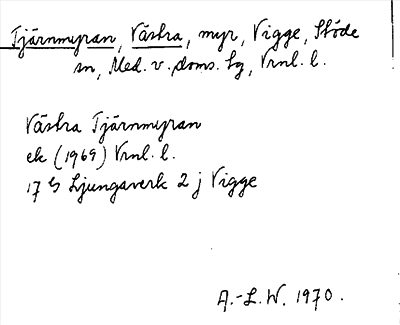 Tjärnmyran, Västra, myr, Vigge, Stöde
sn, Med. v. doms. tg, Vrnl. l.
Västra Tjärnmyran
ek (1969) Vrnl. l.
17 G Ljungaverk 2 j Vigge
A.-L.W. 1970.